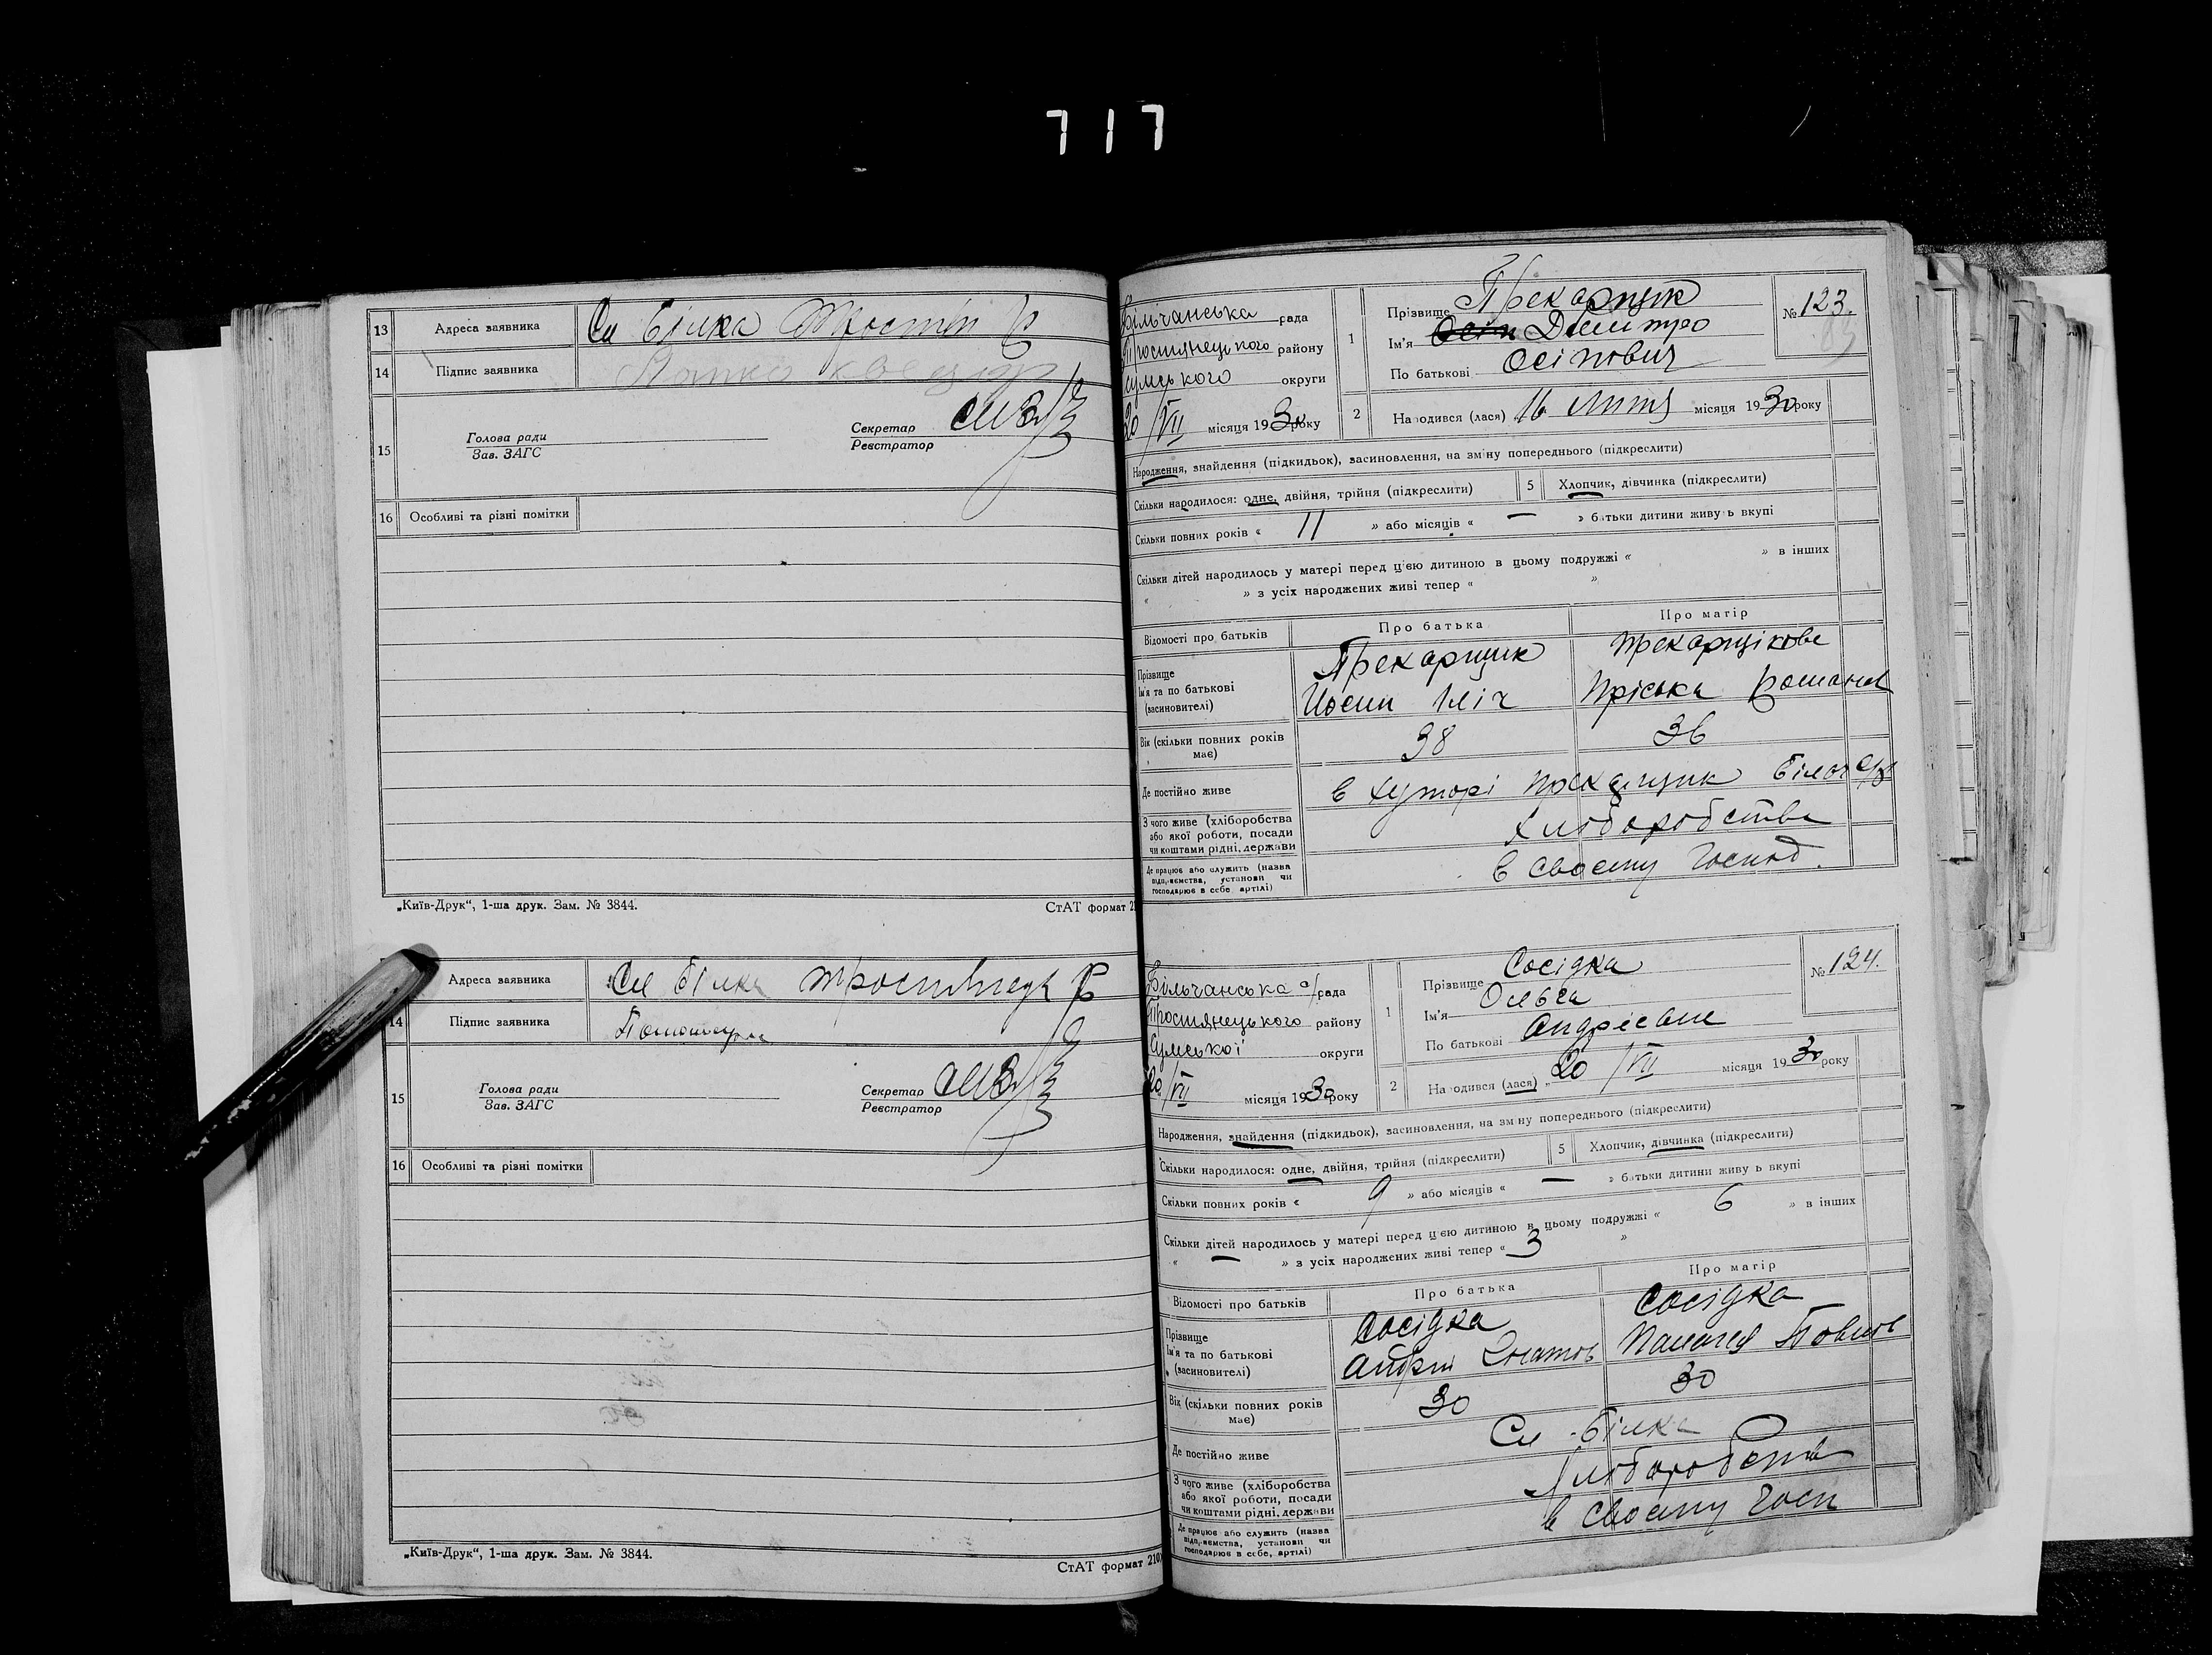 717
13 Адреса заявника Сл Білка Тростян р
14 Підпис заявника
15 Голова ради
Зав. ЗАГС
Секретар
Реєстратор
16 Особливі та різні помітки
„Київ-Друк“, 1-ша друк. Зам. № 3844.
СтАТ формат 21
Адреса заявника Сл Білка Тростянець р
14 Підпис заявника
15 Голова ради
Зав. ЗАГС
Секретар
Реєстратор
16 Особливі та різні помітки
„Київ-Друк“, 1-ша друк. Зам. № 3844.
СтАТ формат 210
Більчанська рада
Тростянецького району
Сумського округи
20/VII місяця 1930 року
1 Прізвище Прекарщик
Ім'я Осип Дмитро
По батькові Осіпович
№ 123.
2 Народився (лася) 16 липня місяця 1930 року
Народження, знайдення (підкидьок), засиновлення, на зміну попереднього (підкреслити)
Скільки народилося: одне, двійня, трійня (підкреслити) 5 Хлопчик, дівчинка (підкреслити)
Скільки повних років « 11 » або місяців « — » батьки дитини живуть вкупі
Скільки дітей народилось у матері перед цією дитиною в цьому подружжі « » в інших
« » з усіх народжених живі тепер « »
Відомості про батьків Про батька Про матір
Прізвище Прекарщик Прекарщікова
Ім'я та по батькові Йосип Іліч Пріська Роман
(засиновителі)
Вік (скільки повних років має) 38 36
Де постійно живе в хуторі Прекарщик Білоч с/р
З чого живе (хліборобства або якої роботи, посади чи коштами рідні, держави Хліборобства
Де працює або служить (назва підприємства, установи чи господарює в себе, артілі) в своєму господ.
Більчанська с/рада
Тростянецького району
Сумської округи
20/VII місяця 1930 року
1 Прізвище Сосідка
Ім'я Ольга
По батькові Андрієвна
№ 124.
2 Народився (лася) 20/VII місяця 1930 року
Народження, знайдення (підкидьок), засиновлення, на зміну попереднього (підкреслити)
Скільки народилося: одне, двійня, трійня (підкреслити) 5 Хлопчик, дівчинка (підкреслити)
Скільки повних років « 9 » або місяців « — » батьки дитини живуть вкупі
Скільки дітей народилось у матері перед цією дитиною в цьому подружжі « 6 » в інших
« — » з усіх народжених живі тепер « 3 »
Відомості про батьків Про батька Про матір
Прізвище Сосідка Сосідка
Ім'я та по батькові Андрій
(засиновителі)
Вік (скільки повних років має) 30 30
Де постійно живе Сл. Білка
З чого живе (хліборобства або якої роботи, посади чи коштами рідні, держави Хліборобств
Де працює або служить (назва підприємства, установи чи господарює в себе, артілі) в своєму госп